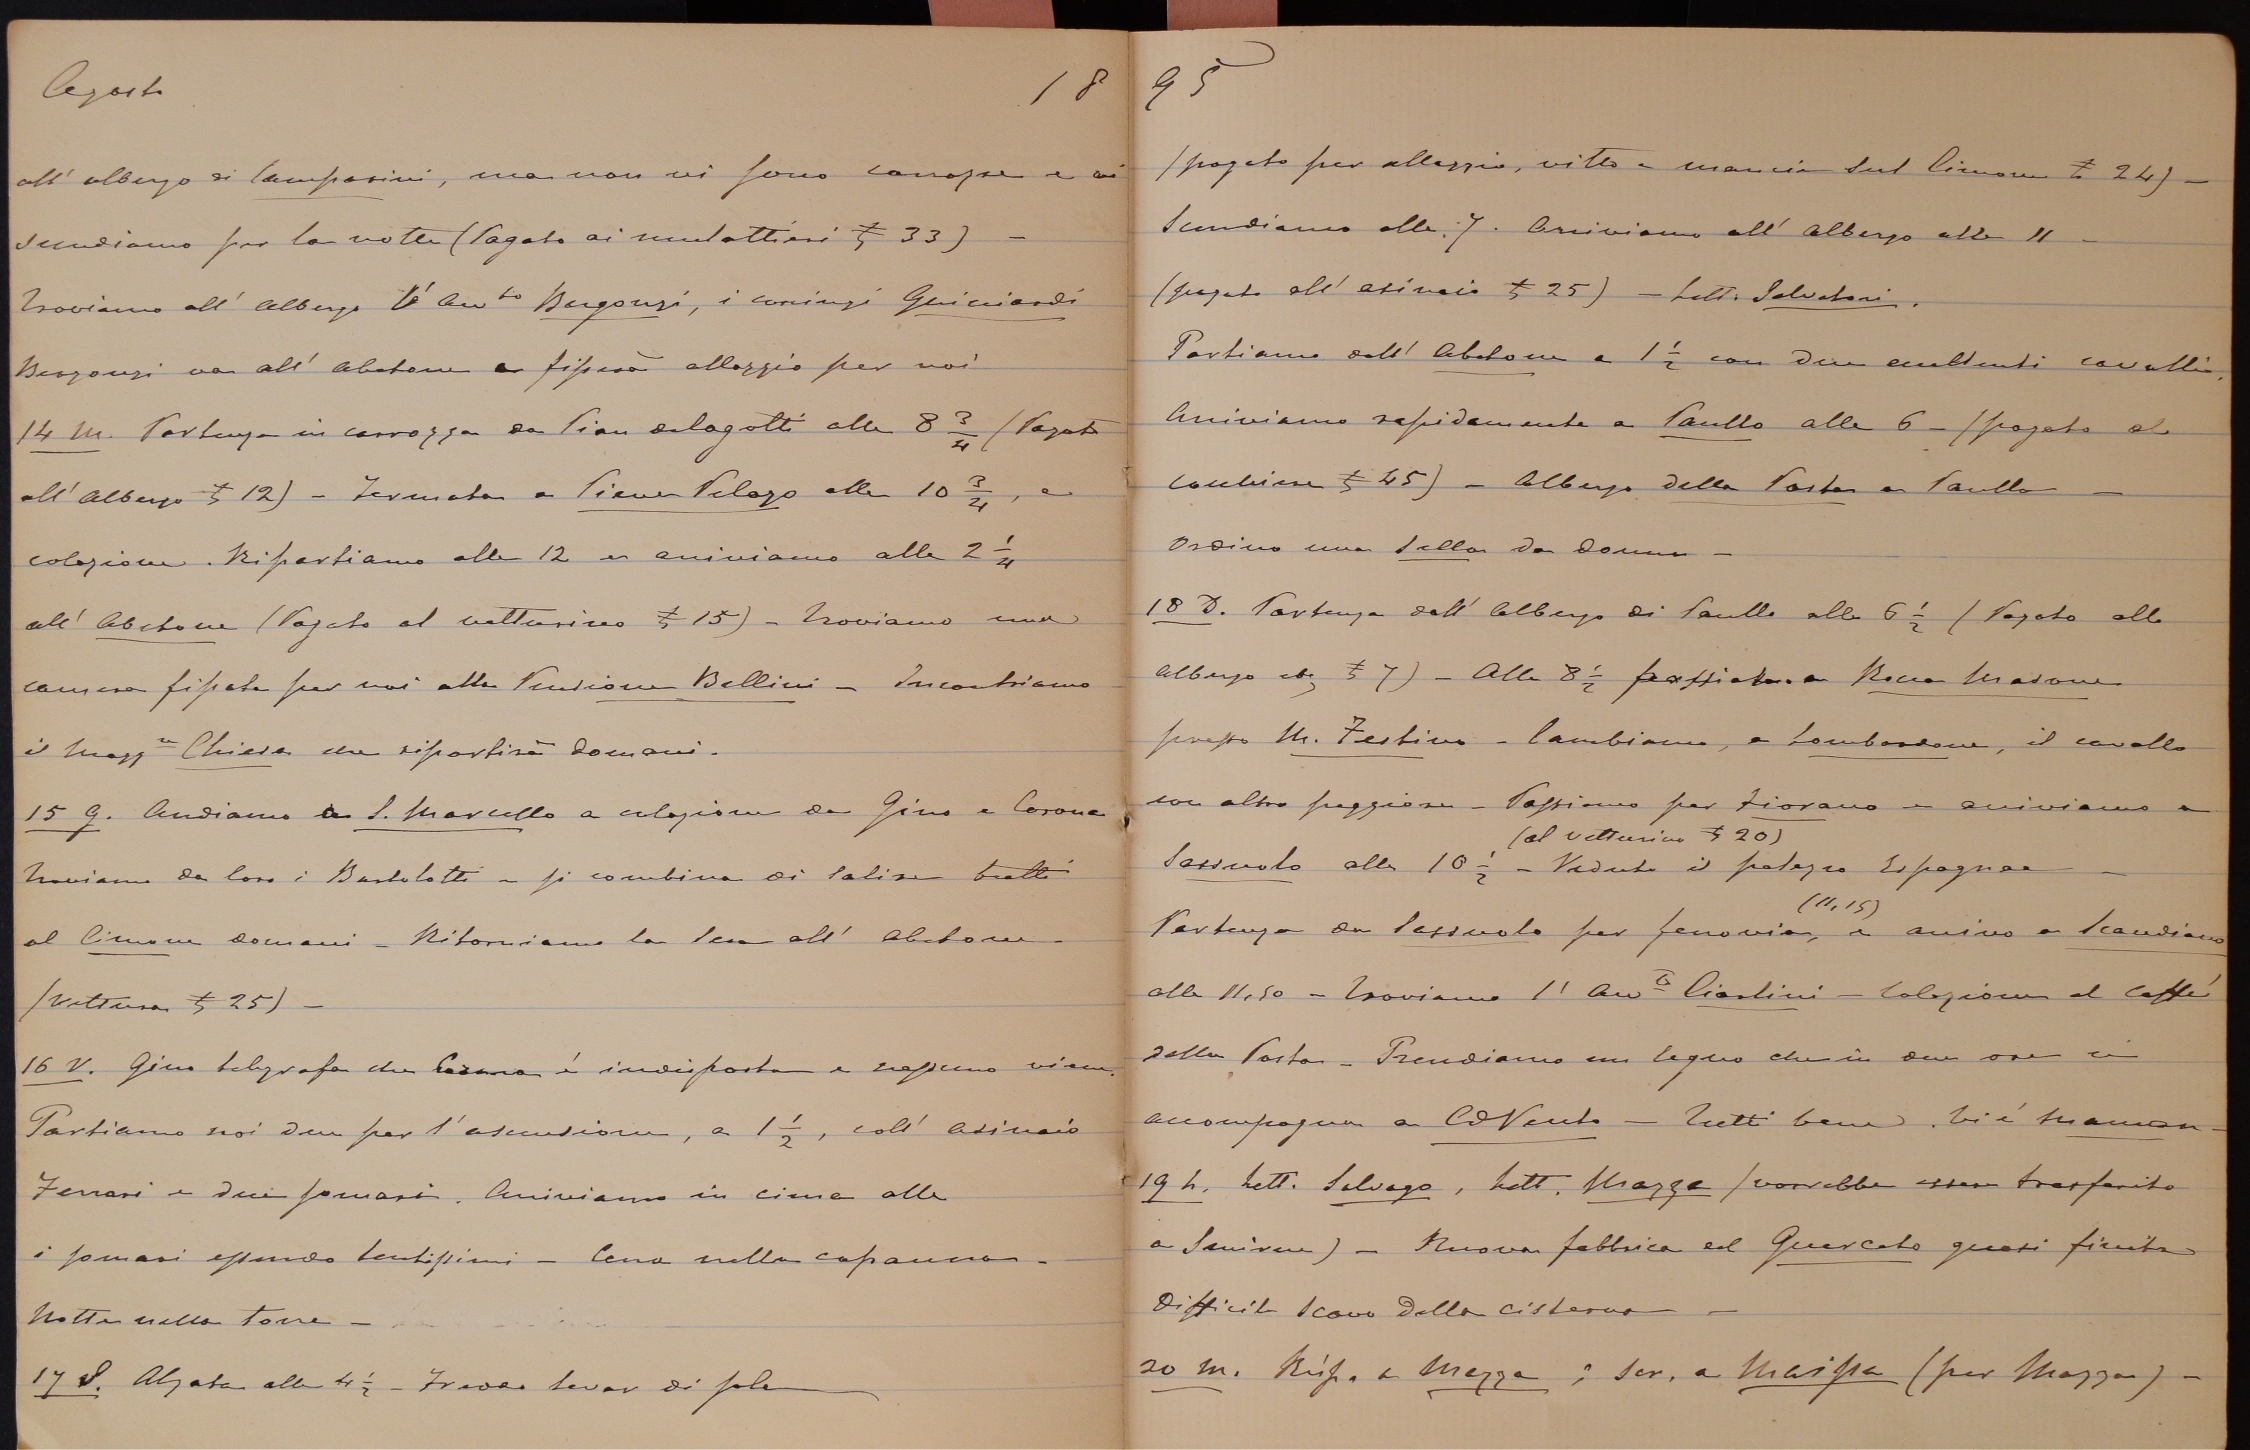 Agosto 18
all' albergo di Camparini, ma non vi sono carrozze e ci
scendiamo per la notte (Pagato ai mulattieri £ 33) -
Troviamo all' Albergo l' Avv.to Bergonzi, i coniugi Guicciardi
Bergonzi va all' Abetone e fisserà alloggio per noi
14 M. Partenza in carrozza da Pian delagotti alle 8 3/4 (Pagato
all' Albergo £ 12) - Fermata a Pieve Pelago alle 10 3/4, a
colazione. Ripartiamo alle 12 e arriviamo alle 2 1/4
all' Abetone (Pagato al vetturino £ 15) - Troviamo una
camera fissata per noi alla Pensione Bellini - Incontriamo
il Magg.re Chiesa che ripartirà domani.
15 G. Andiamo a S. Marcello a colazione da Gino e Corona
Troviamo da loro i Bartolotti e si combina di salire tutti
al Cimone domani - Ritorniamo la sera all' Abetone -
(Vettura £ 25) -
16 V. Gino telegrafa che Corona è indisposta e nessuno viene.
Partiamo noi due per l'ascensione, a 1 1/2, coll' asinaio
Ferrari e due somari. Arriviamo in cima alle
i somari essendo lentissimi - Cena nella capanna -
Notte nella torre -
17 S. Alzata alle 4 1/2 - Freddo levar di sole
95
(pagato per alloggio, vitto e mancia sul Cimone £ 24) -
Scendiamo alle 7. Arriviamo all' albergo alle 11 -
(pagato all' asinaio £ 25) - Lett. Salvatori.
Partiamo dall' Abetone a 1 1/2 con due eccellenti cavalli.
Arriviamo rapidamente a Paullo alle 6 - (pagato al
cocchiere £ 45) - Albergo della Posta a Paullo -
Ordino una sella da donna -
18 D. Partenza dall' Albergo di Paullo alle 6 1/2 (Pagato allo
albergo £ 7) - Alle 8 1/2 a Rocca Madone
presso M. Festino - Cambiamo, a Lombardone, il cavallo
con altro peggiore - Passiamo per Fiorano e arriviamo a
(al vetturino £ 20)
Sassuolo alle 10 1/2 - Veduto il palazzo Espagnac -
(11,15)
Partenza da Sassuolo per ferrovia, e arrivo a Scandiano
alle 11,50 - Troviamo l' Avv.to Ciarlini - Colazione al Caffè
della Posta - Prendiamo un legno che in due ore ci
accompagna a CdVento - Tutti bene. Vi è Maman -
19 L. Lett. Salvago, Lett. Mazza (vorrebbe essere trasferito
a Smirne) - Nuova fabbrica al Querceto quasi finita
Difficile scavo della cisterna -
20 M. Risp. a Mazza; Scr. a (per Mazza) -